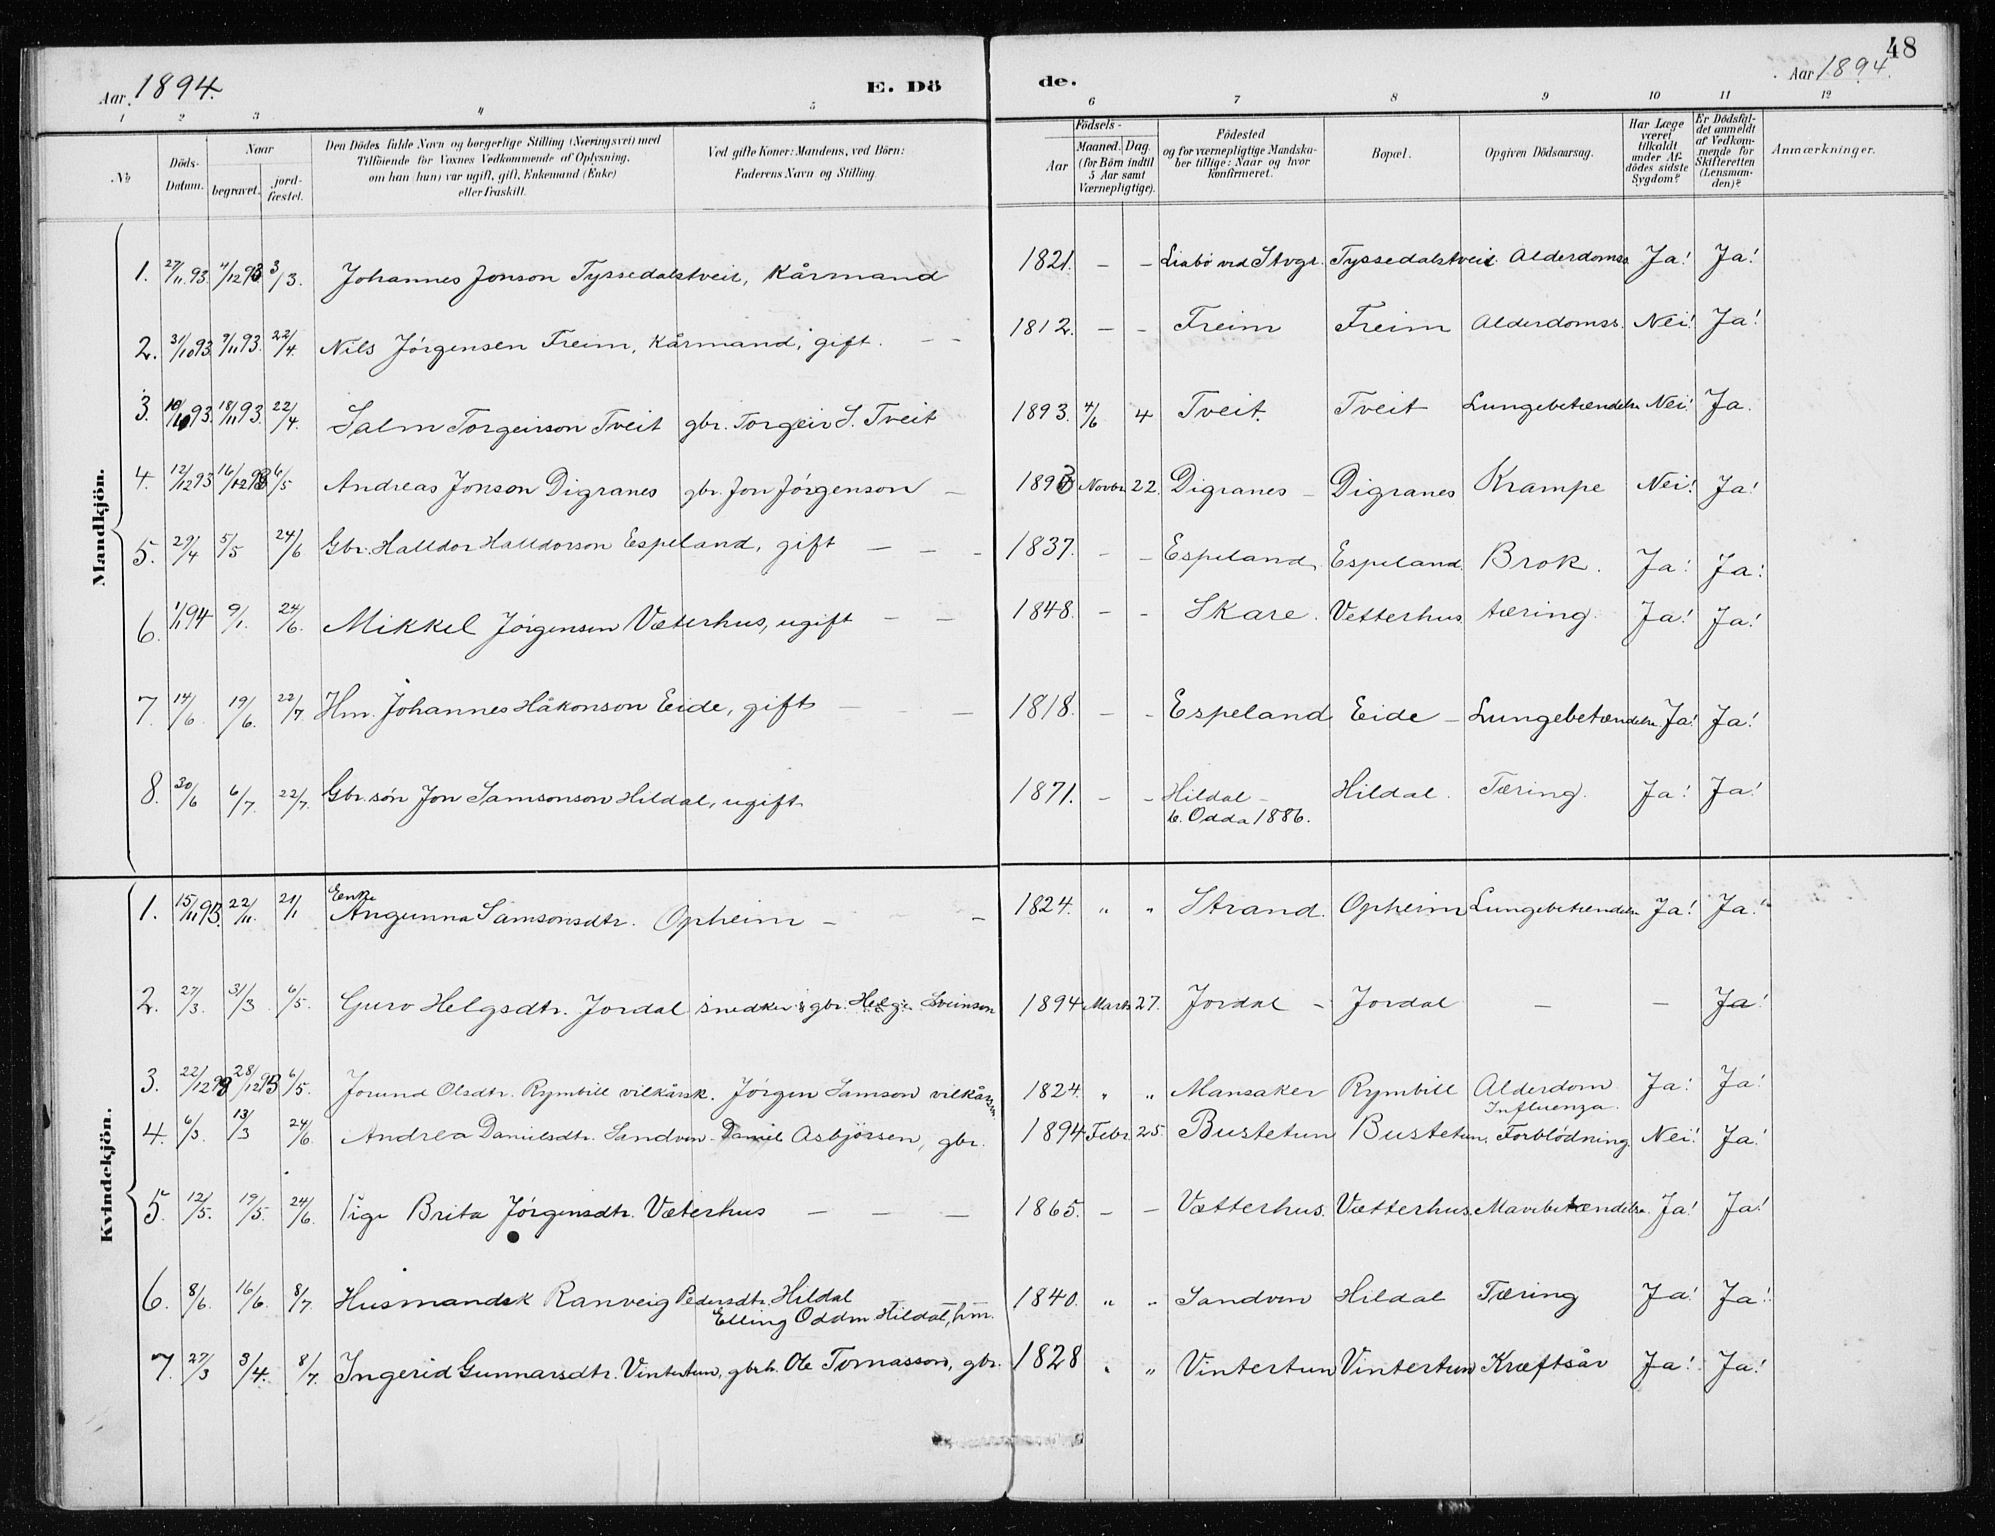 48
Aar 1894. E. Dö de. Aar 1894.
1 2 3 4 5 6 7 8 9 10 11 12
No Döds-Datum. Naar begravet. jord-fæstet. Den Dödes fulde Navn og borgerlige Stilling (Næringsvei) med Tilföiende for Voxnes Vedkommende af Oplysning, om han (hun) var ugift, gift, Enkemand (Enke) eller fraskilt. Ved gifte Koner: Mandens, ved Börn: Faderens Navn og Stilling. Födsels- Aar Maaned. Dag. (for Börn indtil 5 Aar samt Værnepligtige). Födested og for værnepligtige Mandskaber tillige: Naar og hvor konfirmeret. Bopæl. Opgiven Dödsaarsag. Har Læge været tilkaldt under Afdödes sidste Sygdom? Er Dödsfaldet anmeldt af Vedkommende for Skifteretten (Lensmanden)? Anmærkninger.
Mandkjön.
1. 27/11.93. 4/12 93 3/3. Johannes Jonson Tyssedalstveit, Kårmand 1821. – – Liabö ved Stvgr. Tyssedalstveit Alderdomss. Ja! Ja!
2. 31/10 93. 9/11 93. 22/4. Nils Jörgensen Freim, Kårmand, gift. – – 1812. – – Freim Freim Alderdomss. Nei! Ja!
3. 10/10 93. 18/11 93. 22/4. Salm Torgeirson Tveit gbr. Torgeir S. Tveit 1893. 4/6 4 Tveit. Tveit Lungebetændelse Nei! Ja.
4. 12/12 93 16/12 93 6/5 Andreas Jonson Digranes gbr. Jon Jörgenson – 1893 Novbr. 22. Digranes – Digranes Krampe Nei! Ja!
5. 29/4 5/5 24/6 Gbr. Halldor Halldorson Espeland, gift – – – 1837. – – Espeland, Espeland. Brok. Ja! Ja!
6. 1/1 94 9/1. 24/6. Mikkel Jörgensen Væterhus, ugift – – 1848. – – Skare. Vetterhus tæring. Ja! Ja!
7. 14/6 19/6. 22/7. Hm. Johannes Håkonson Eide, gift – – – 1818. – – Espeland Eide – Lungebetændelse. Ja! Ja!
8. 30/6 6/7. 22/7. Gbr.sön Jon Samsonson Hildal, ugift. 1871. – – Hildal – Hildal. Tæring. Ja! Ja!
k. Odda 1886.
Kvindekjön.
Enke
1. 15/11 93. 22/11. 21/1 Angunna Samsonsdtr. Opheim – – 1824. " " Strand. Opheim Lungebetændelse Ja! Ja!
2. 27/3. 31/3. 6/5. Guro Helgsdtr. Jordal snedker & gbr. Helge Sveinson 1894 Marts 27. Jordal – Jordal – – Ja!
3. 22/12 93 28/12 93 6/5. Jorund Olsdtr. Rymbill vilkårsk. Jörgen Samson vilkårsm. 1824. " " Mansaker Rymbill Alderdom Ja! Ja!
Influenza.
4. 6/3. 13/3 24/6. Andrea Danielsdtr. Sandven – Daniel Asbjörsen, gbr. 1894 Febr. 25. Bustetun Bustetun, Forblödning Nei! Ja!
5. 12/5. 19/5. 24/6. Pige Brita Jörgensdtr. Væterhus – – – 1865. – – Vætterhus. Vætterhus. Mavebetændelse. Ja! Ja!
6. 8/6. 16/6. 8/7. Husmandsk Ranveig Pedersdtr. Hildal 1840. " " Sandven Hildal Tæring Ja! Ja!
Elling Oddm. Hildal, hm.
7. 27/3 3/4. 8/7. Ingerid Gunnarsdtr. Vintertun, gbrk. Ole Tomasson, gbr. 1828 " " Vintertun Vintertun Kræftsår Ja! Ja!